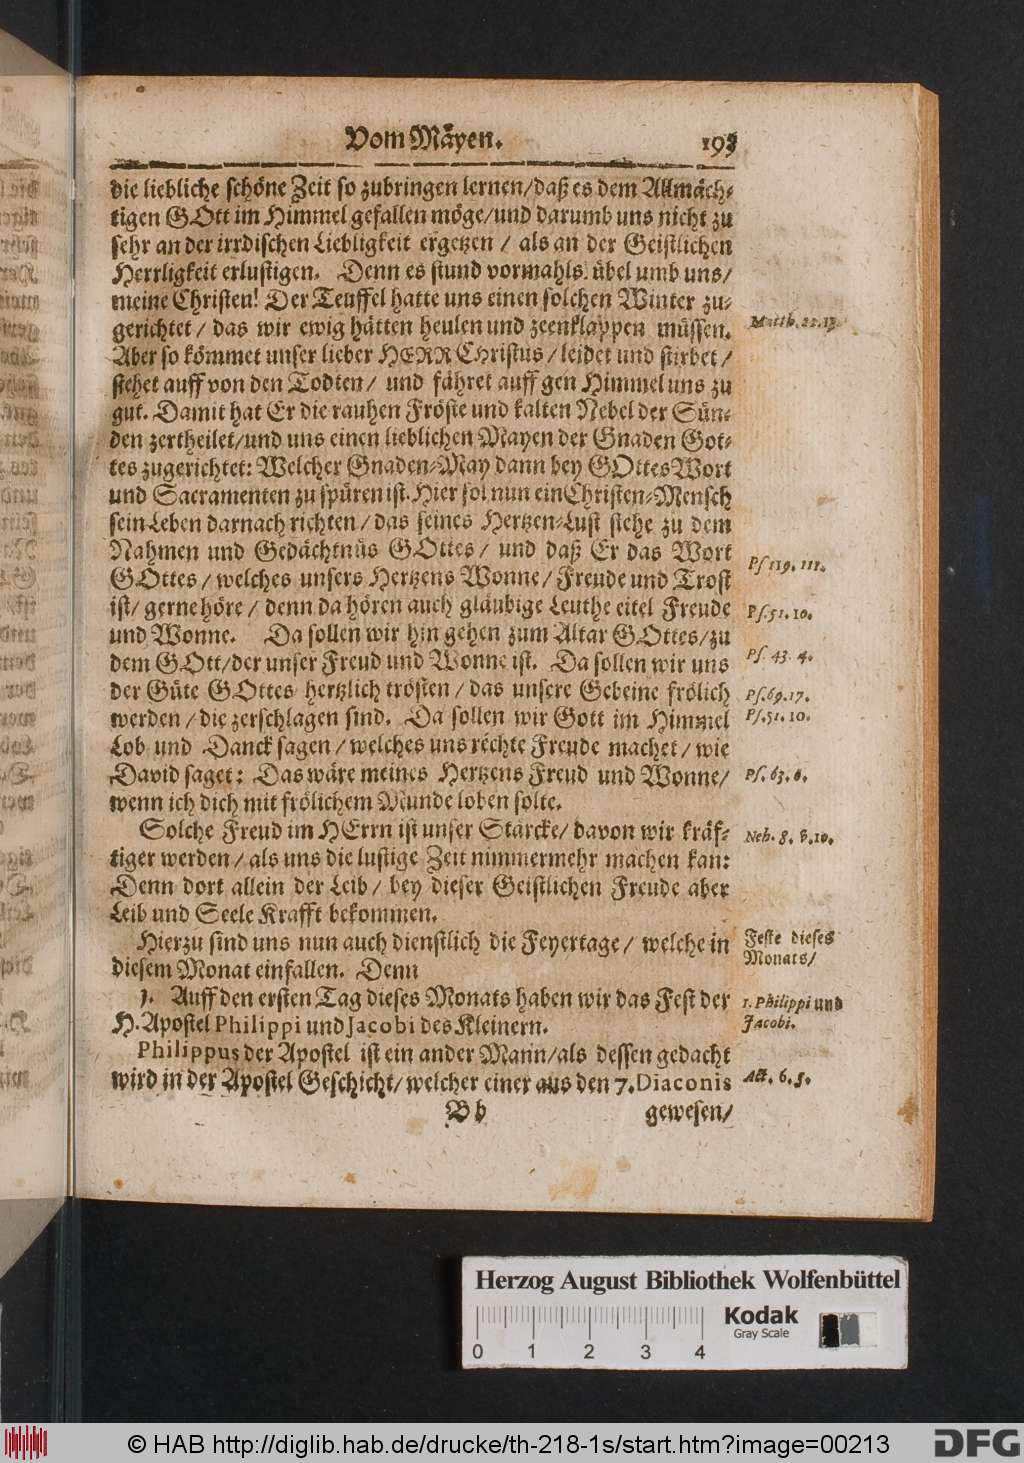 Vom Mäyen. 193
die liebliche schöne Zeit so zubringen lernen/daß es dem Allmäch-
tigen GOtt im Himmel gefallen möge/und darumb uns nicht zu
sehr an der irrdischen Liebligkeit ergetzen / als an der Geistlichen
Herrligkeit erlustigen. Denn es stund vormahls übel umb uns/
meine Christen! Der Teuffel hatte uns einen solchen Winter zu-
gerichtet / das wir ewig hätten heulen und zeenklappen müssen.
Matth. 22. 13.
Aber so kömmet unser lieber HERR Christus / leidet und stirbet /
stehet auff von den Todten / und fähret auff gen Himmel uns zu
gut. Damit hat Er die rauhen Fröste und kalten Nebel der Sün-
den zertheilet/und uns einen lieblichen Mayen der Gnaden Got-
tes zugerichtet: Welcher Gnaden-May dann bey GOttes Wort
und Sacramenten zu spüren ist. Hier sol nun ein Christen-Mensch
sein Leben darnach richten / das seines Hertzen-Lust stehe zu dem
Nahmen und Gedächtnüs GOttes / und daß Er das Wort
GOttes / welches unsers Hertzens Wonne / Freude und Trost
Ps 119. 111.
ist/ gerne höre / denn da hören auch gläubige Leuthe eitel Freude
Ps. 51. 10.
und Wonne. Da sollen wir hin gehen zum Altar GOttes/zu
dem GOtt/der unser Freud und Wonne ist. Da sollen wir uns
Ps. 43. 4.
der Güte GOttes hertzlich trösten / das unsere Gebeine frölich
Ps. 69. 17.
werden / die zerschlagen sind. Da sollen wir Gott im Himmel
Ps. 51. 10.
Lob und Danck sagen / welches uns rechte Freude machet / wie
David saget: Das wäre meines Hertzens Freud und Wonne/
Ps. 63. 6.
wenn ich dich mit frölichem Munde loben solte.
Solche Freud im HErrn ist unser Stärcke/ davon wir kräf-
Neh. 8. v. 10.
tiger werden / als uns die lustige Zeit nimmermehr machen kan:
Denn dort allein der Leib / bey dieser Geistlichen Freude aber
Leib und Seele Krafft bekommen.
Hierzu sind uns nun auch dienstlich die Feyertage / welche in
diesem Monat einfallen. Denn
Feste dieses
Monats/
1. Auff den ersten Tag dieses Monats haben wir das Fest der
H. Apostel Philippi und Jacobi des Kleinern.
1. Philippi und
Jacobi.
Philippus der Apostel ist ein ander Mann/als dessen gedacht
wird in der Apostel Geschicht/ welcher einer aus den 7. Diaconis
Act. 6. 5.
Bb gewesen/
Herzog August Bibliothek Wolfenbüttel
0 1 2 3 4
Kodak
Gray Scale
© HAB http://diglib.hab.de/drucke/th-218-1s/start.htm?image=00213
DFG